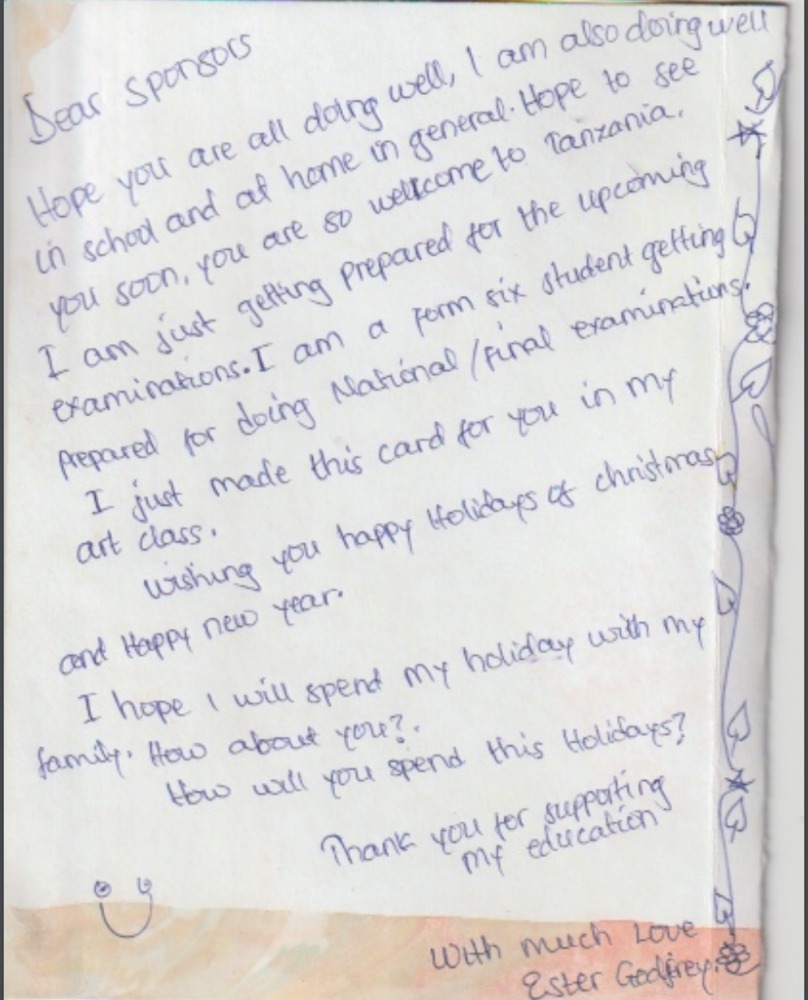 Dear Sponsors
Hope you are all doing well, I am also doing well
in school and at home in general. Hope to see
you soon, you are so wellcome to Tanzania.
I am just getting prepared for the upcoming
examinations. I am a form six student getting
prepared for doing National/final examinations.
I just made this card for you in my
art class.
wishing you happy Holidays of christmas
and Happy new year.
I hope I will spend my holiday with my
family. How about you?.
How will you spend this Holidays?
Thank you for supporting
my education
With much Love
Ester Godfrey.